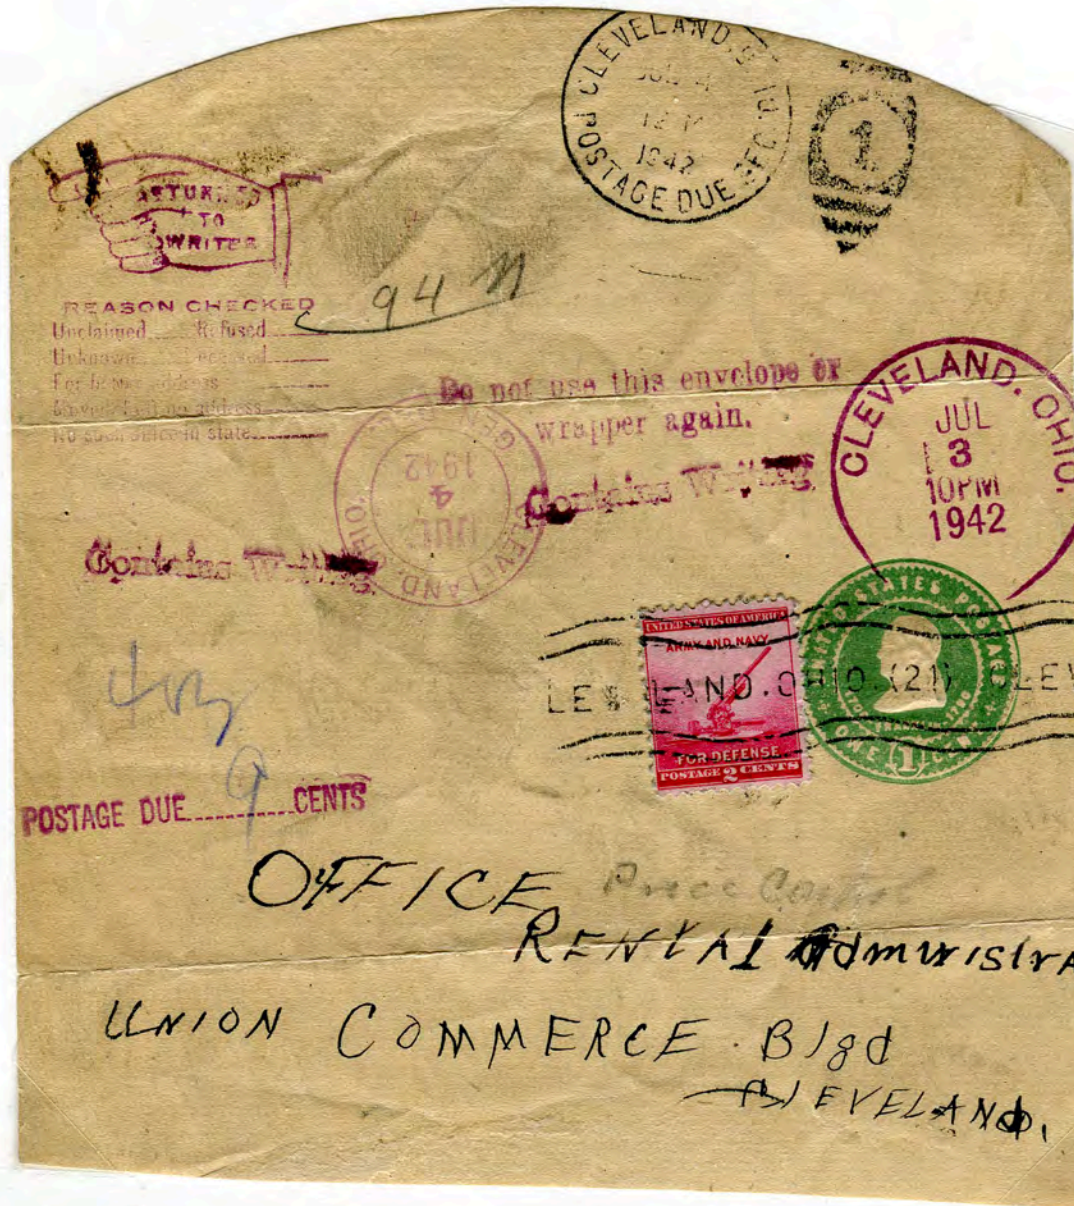 CLEVELAND, OHIO
JUL
12 M
1942
POSTAGE DUE SEC.
1
RETURNED
TO
WRITER
94 M
REASON CHECKED
Unclaimed Refused
Unknown
For better address
Moved, Left no address
No such office in state
Do not use this envelope or
wrapper again.
CLEVELAND, OHIO.
JUL
3
10 PM
1942
CLEVELAND, OHIO
JUL
4
1942
Contains Writing
Contains Writing
UNITED STATES OF AMERICA
ARMY AND NAVY
FOR DEFENSE
POSTAGE 2 CENTS
UNITED STATES POSTAGE
ONE (1) CENT
LEVELAND, OHIO. (21) CLEV
POSTAGE DUE 9 CENTS
OFFICE Price Control
RENTAL Administra
UNION COMMERCE Blgd
CLEVELAND.